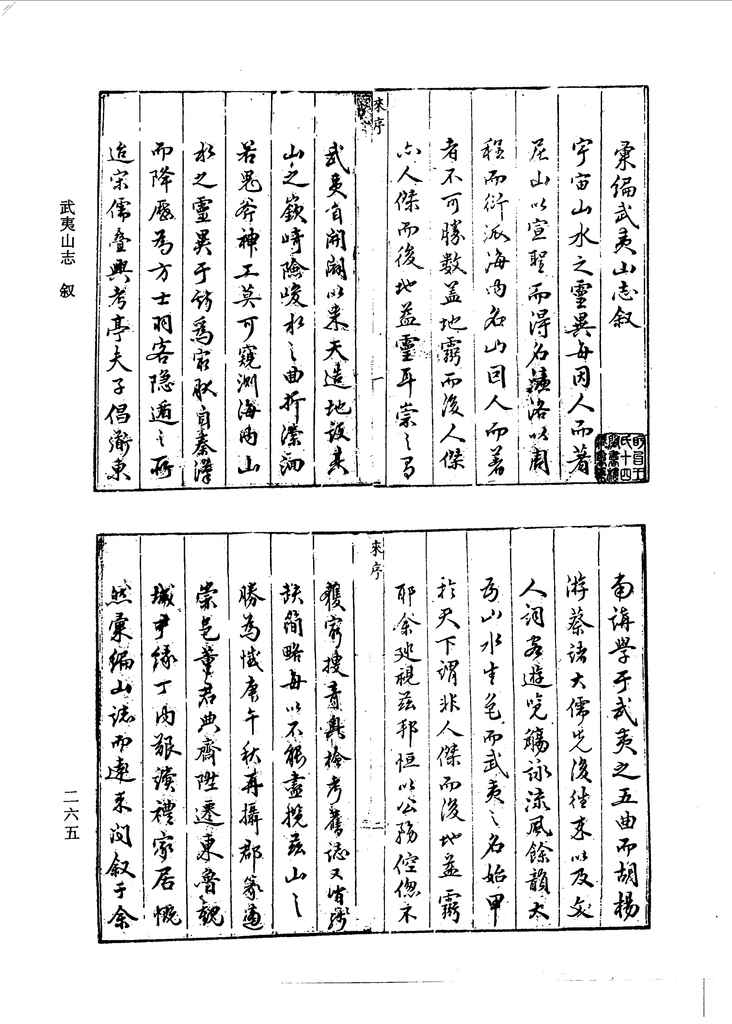 彙編武夷山志叙
宇宙山水之靈異每因人而著
尼山以宣聖而得名濂洛以周
程而衍派海內名山因人而著
者不可勝數蓋地靈而後人傑
亦人傑而後地益靈耳崇之有
來序
一
武夷自開闢以來天造地設其
山之嶔崎險峻水之曲折瀠洄
若鬼斧神工莫可窺測海內山
水之靈異于斯為最耿自秦漢
而降歷為方士羽客隱遁之所
迨宋儒叠興考亭夫子倡道東
南講學于武夷之五曲而胡楊
游蔡諸大儒先後往來以及文
人詞客遊覽觴詠流風餘韻大
為山水生色而武夷之名始甲
於天下謂非人傑而後地益靈
耶余建視茲邦恒以公務倥傯不
來序
二
獲窮搜音奧檢考舊誌又皆殘
缺簡略每以不能盡攬茲山之
勝為憾庚午秋再攝郡篆適
崇邑董君典齋陞遷東魯觀
城尹緣丁內艱讀禮家居慨
然彙編山誌而遠來問叙于余
武夷山志 叙
二六五